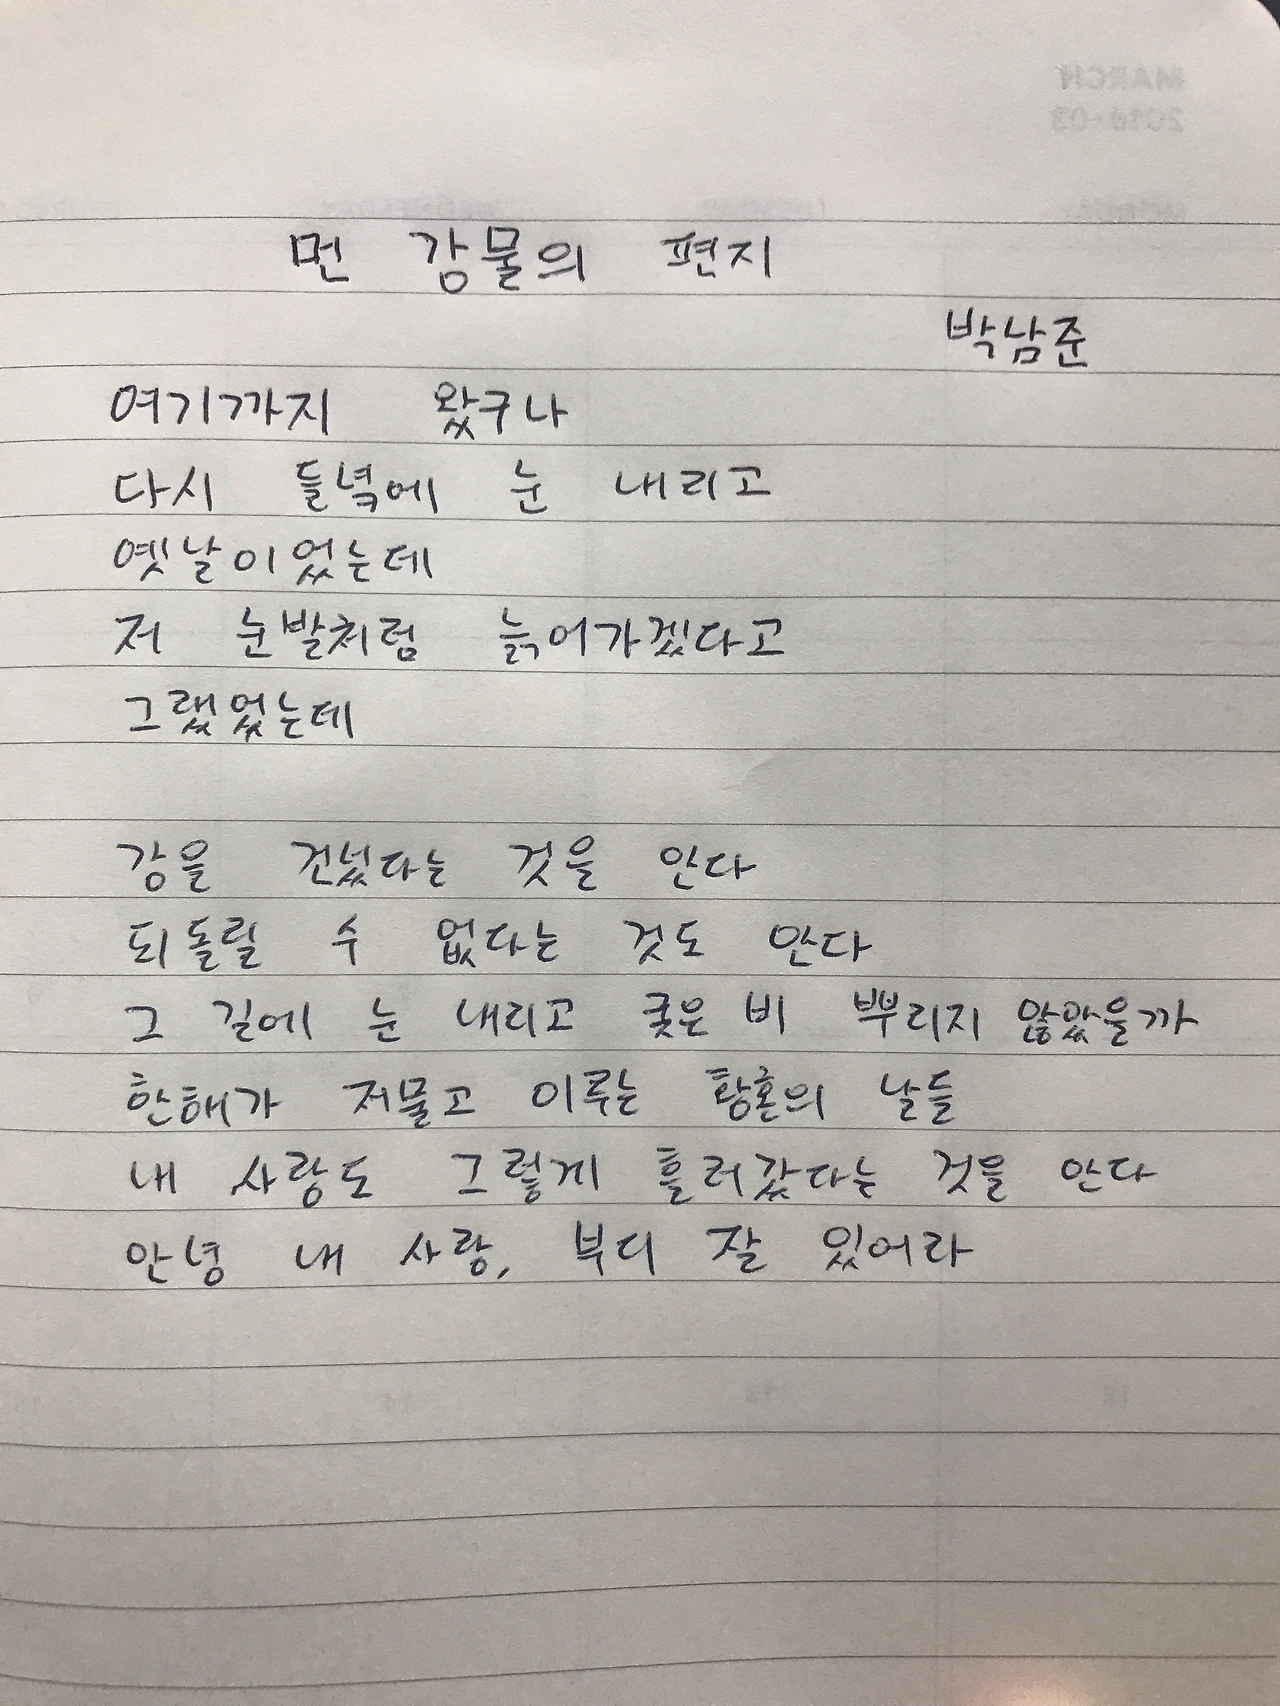 먼 강물의 편지
박남준
여기까지 왔구나
다시 들녘에 눈 내리고
옛날이었는데
저 눈발처럼 늙어가겠다고
그랬었는데
강을 건넜다는 것을 안다
되돌릴 수 없다는 것도 안다
그 길에 눈 내리고 궂은 비 뿌리지 않았을까
한해가 저물고 이루는 황혼의 날들
내 사랑도 그렇게 흘러갔다는 것을 안다
안녕 내 사랑, 부디 잘 있어라